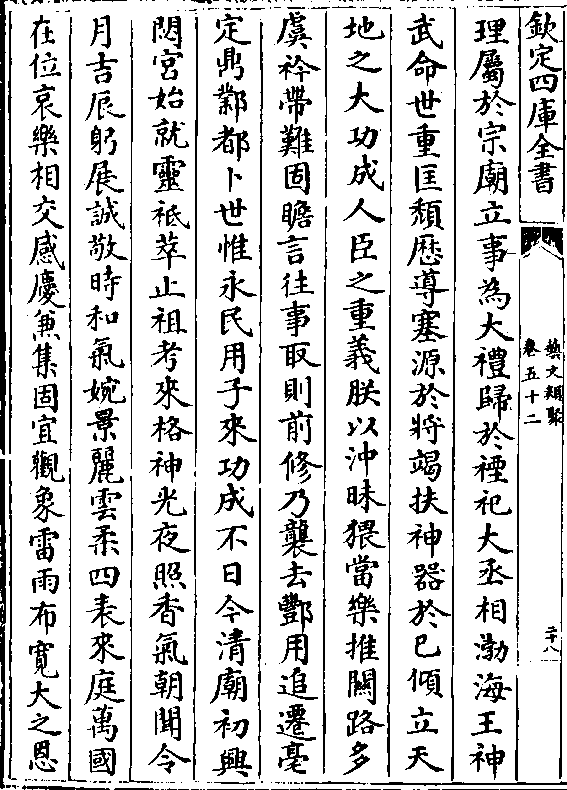 欽定四庫全書
藝文類聚
卷五十二
二十八
理屬於宗廟立事為大禮歸於禋祀大丞相渤海王神
武命世重匡頽厯導塞源於將竭扶神器於已傾立天
地之大功成人臣之重義朕以沖昧猥當樂推關路多
虞衿帶難固瞻言往事取則前修乃襲去酆用追遷亳
定鼎鄴都卜世惟永民用子來功成不日今清廟初興
閟宮始就靈祗萃止祖考來格神光夜照香氣朝聞令
月吉辰躬展誠敬時和氣婉景麗雲柔四表來庭萬國
在位哀樂相交感慶兼集固宜觀象雷雨布寛大之恩